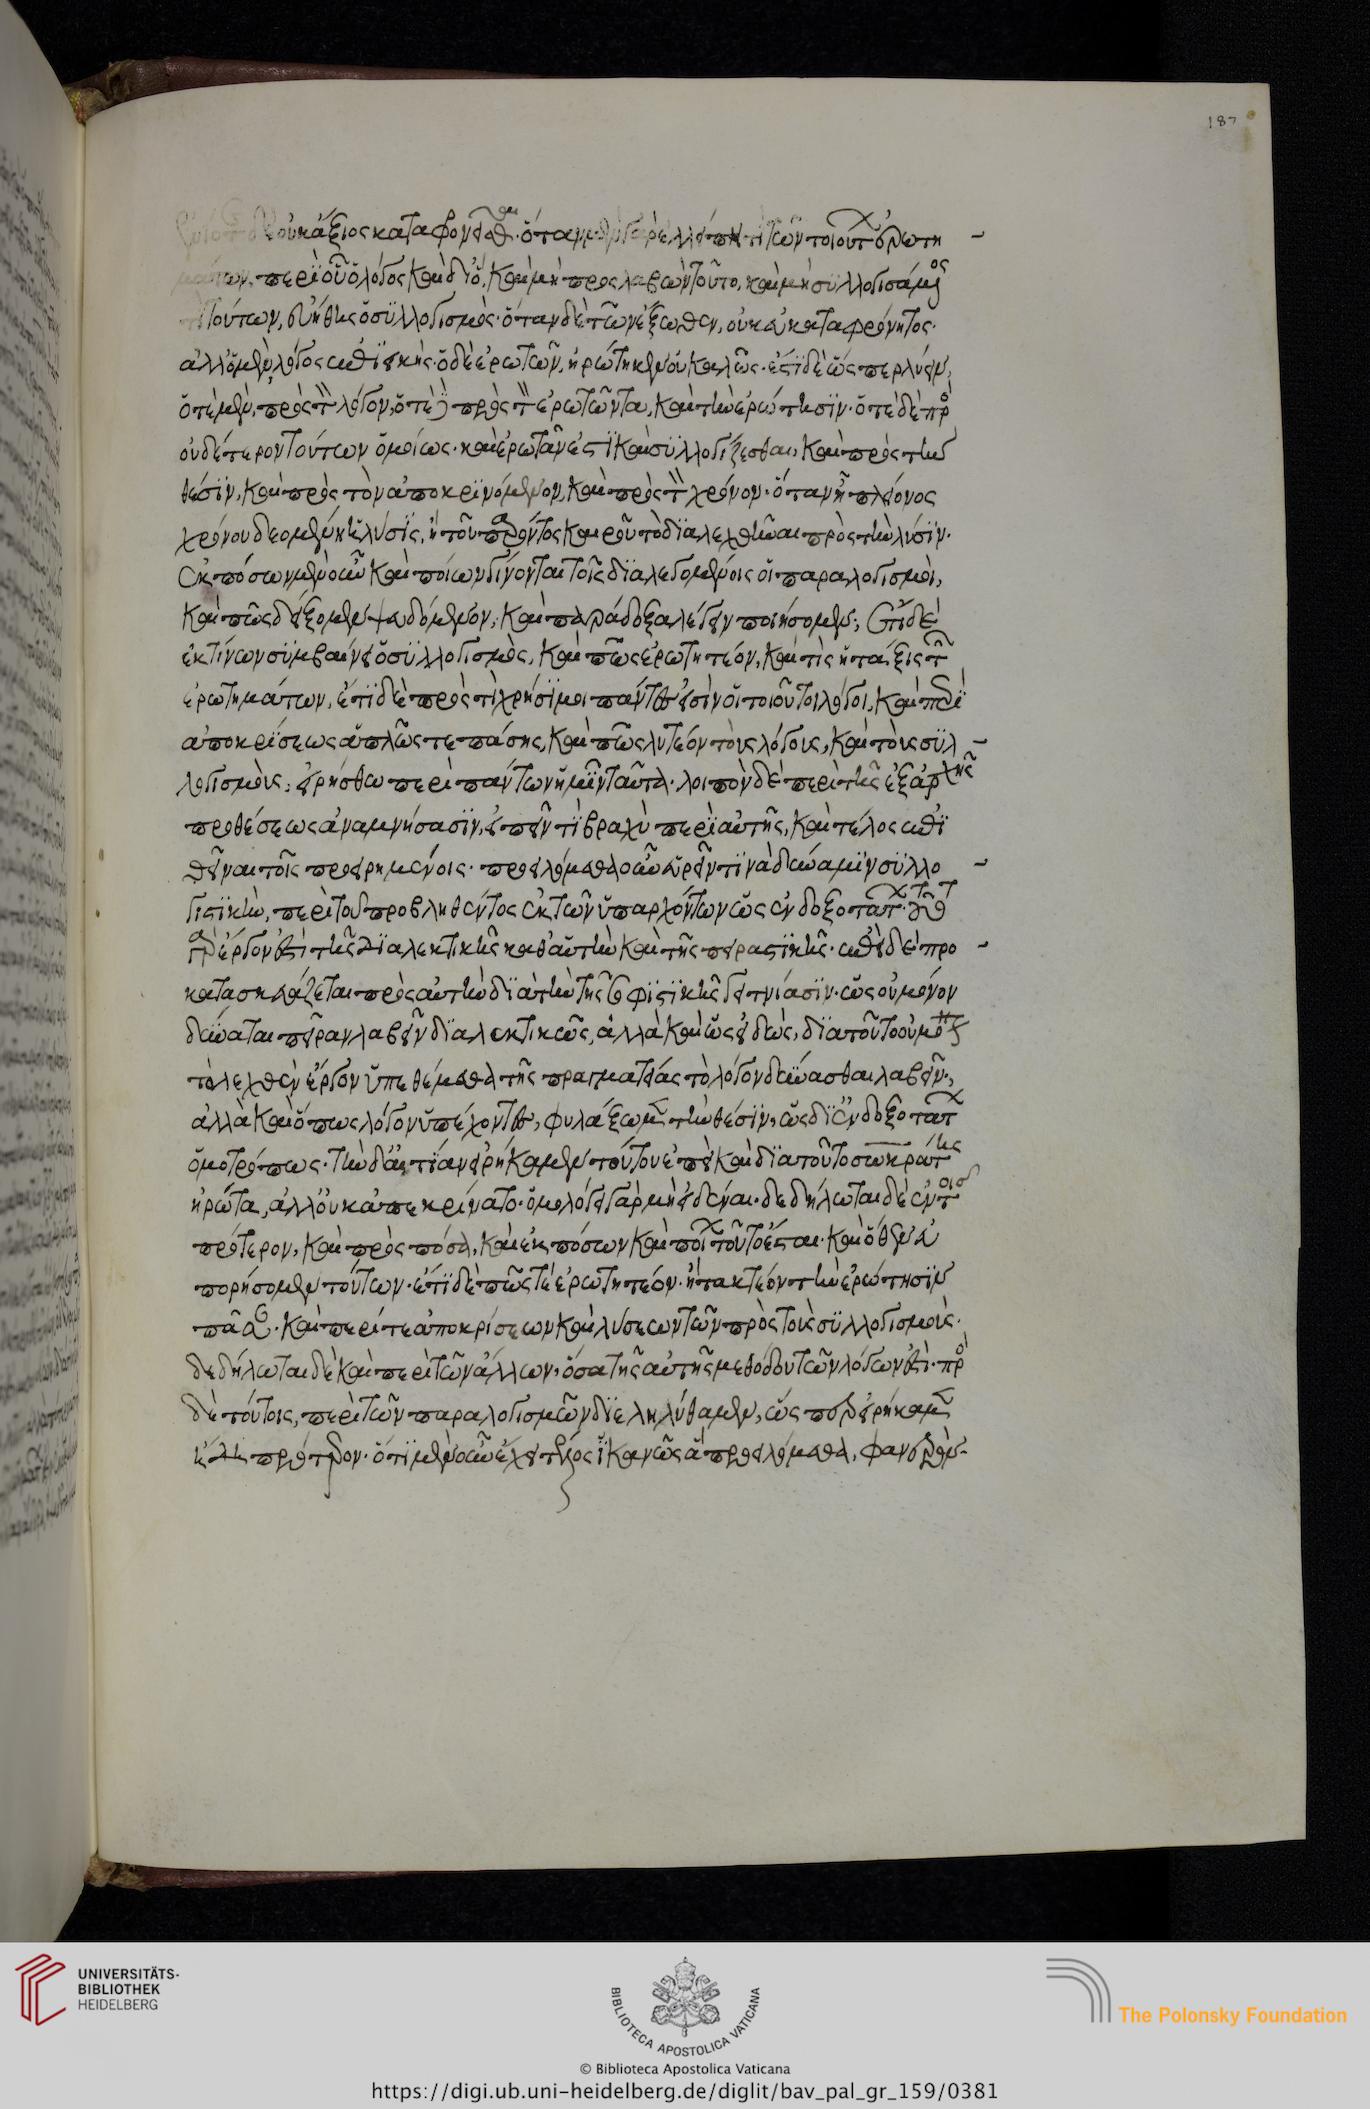 δὲ οὐκ ἄξιος καταφρονεῖσθαι. ὅταν μὲν γὰρ ἐλλείπη τὶ τῶν τοιούτων ἐρωτη -
μάτων, περὶ οὗ ὁ λόγος καὶ δι' ὅ, καὶ μὴ προσλαβὼν τοῦτο, καὶ μὴ συλλογισάμενος
τούτων, εὐήθης ὁ συλλογισμός· ὅταν δὲ τῶν ἔξωθεν, οὐκ εὐκαταφρόνητος·
ἀλλ' ὁ μὲν λόγος ἐπιεικής· ὁ δὲ ἐρωτῶν, ἠρώτηκεν οὐ καλῶς· ἔστι δὲ ὥσπερ λύειν,
ὁτὲ μὲν, πρὸς τὸν λόγον, ὁτὲ δὲ πρὸς τὸν ἐρωτῶντα, καὶ τὴν ἐρώτησιν· ὁτὲ δὲ πρὸς
οὐδέτερον τούτων ὁμοίως· καὶ ἐρωτᾶν ἐστὶ καὶ συλλογίζεσθαι, καὶ πρὸς τὴν
θέσιν, καὶ πρὸς τὸν ἀποκρινόμενον, καὶ πρὸς τὸν χρόνον· ὅταν ἦ πλείονος
χρόνου δεομένη ἡ λύσις, ἢ τοῦ παρόντος καιροῦ τὸ διαλεχθῆναι πρὸς τὴν λύσιν·
ἐκ πόσων μὲν οὖν καὶ ποίων γίνονται τοῖς διαλεγομένοις οἱ παραλογισμοὶ,
καὶ πῶς δείξομεν ψευδόμενον, καὶ παράδοξα λέγειν ποιήσομεν, ἔτι δὲ
ἐκ τίνων συμβαίνει ὁ συλλογισμὸς, καὶ πῶς ἐρωτητέον, καὶ τίς ἡ τάξις τῶν
ἐρωτημάτων, ἔτι δὲ πρὸς τί χρήσιμοι πάντες εἰσὶν οἱ τοιοῦτοι λόγοι, καὶ περὶ
ἀποκρίσεως ἁπλῶς τε πάσης, καὶ πῶς λυτέον τοὺς λόγους, καὶ τοὺς συλ -
λογισμούς; εἰρήσθω περὶ πάντων ἡμῖν ταῦτα· λοιπὸν δὲ περὶ τῆς ἐξ ἀρχῆς
προθέσεως ἀναμνήσασιν, εἰπεῖν τὶ βραχὺ περὶ αὐτῆς, καὶ τέλος ἐπι
θεῖναι τοῖς προειρημένοις· προειλόμεθα οὖν εὑρεῖν τινὰ δύναμιν συλλο -
γιστικὴν, περὶ τοῦ προβληθέντος ἐκ τῶν ὑπαρχόντων ὡς ἐνδοξοτάτων· τοῦτο
γὰρ ἔργον ἐστὶ τῆς διαλεκτικῆς καθ' αὑτὴν καὶ τῆς πειραστικῆς· ἐπεὶ δὲ προ -
κατασκευάζεται πρὸς αὐτὴν διὰ τὴν τῆς σοφιστικῆς γειτνίασιν· ὡς οὐ μόνον
δύναται πεῖραν λαβεῖν διαλεκτικῶς, ἀλλὰ καὶ ὡς εἰδώς, διὰ τοῦτο οὐ μόνον
τὸ λεχθὲν ἔργον ὑπεθέμεθα τῆς πραγματείας τὸ λόγον δύνασθαι λαβεῖν,
ἀλλὰ καὶ ὅπως λόγον ὑπέχοντες, φυλάξωμεν τὴν θέσιν, ὡς δι' ἐνδοξοτάτων
ὁμοτρόπως· τὴν δ' αἰτίαν εἰρήκαμεν τούτου ἐπεὶ καὶ διὰ τοῦτο σωκράτης
ἠρώτα, ἀλλ' οὐκ ἀπεκρίνατο· ὁμολόγει γὰρ μὴ εἰδέναι· δεδήλωται δὲ ἐν τοῖς
πρότερον, καὶ πρὸς πόσα, καὶ ἐκ πόσων καὶ ποίων τοῦτο ἔσται· καὶ ὅθεν εὐ
πορήσομεν τούτων· ἔτι δὲ πῶς τὲ ἐρωτητέον· ἢ τακτέον τὴν ἐρώτησιν
πᾶσαν· καὶ περί τε ἀποκρίσεων καὶ λύσεων τῶν πρὸς τοὺς συλλογισμούς·
δεδήλωται δὲ καὶ περὶ τῶν ἄλλων, ὅσα τῆς αὐτῆς μεθόδου τῶν λόγων ἐστί· πρὸς
δὲ τούτοις, περὶ τῶν παραλογισμῶν διεληλύθαμεν, ὥσπερ εἰρήκαμεν
ἤδη πρότερον· ὅτι μὲν οὖν ἔχει τέλος ἱκανῶς ἃ προειλόμεθα, φανερόν·
187
UNIVERSITÄTS-
BIBLIOTHEK
HEIDELBERG
BIBLIOTECA APOSTOLICA VATICANA
The Polonsky Foundation
© Biblioteca Apostolica Vaticana
https://digi.ub.uni-heidelberg.de/diglit/bav_pal_gr_159/0381